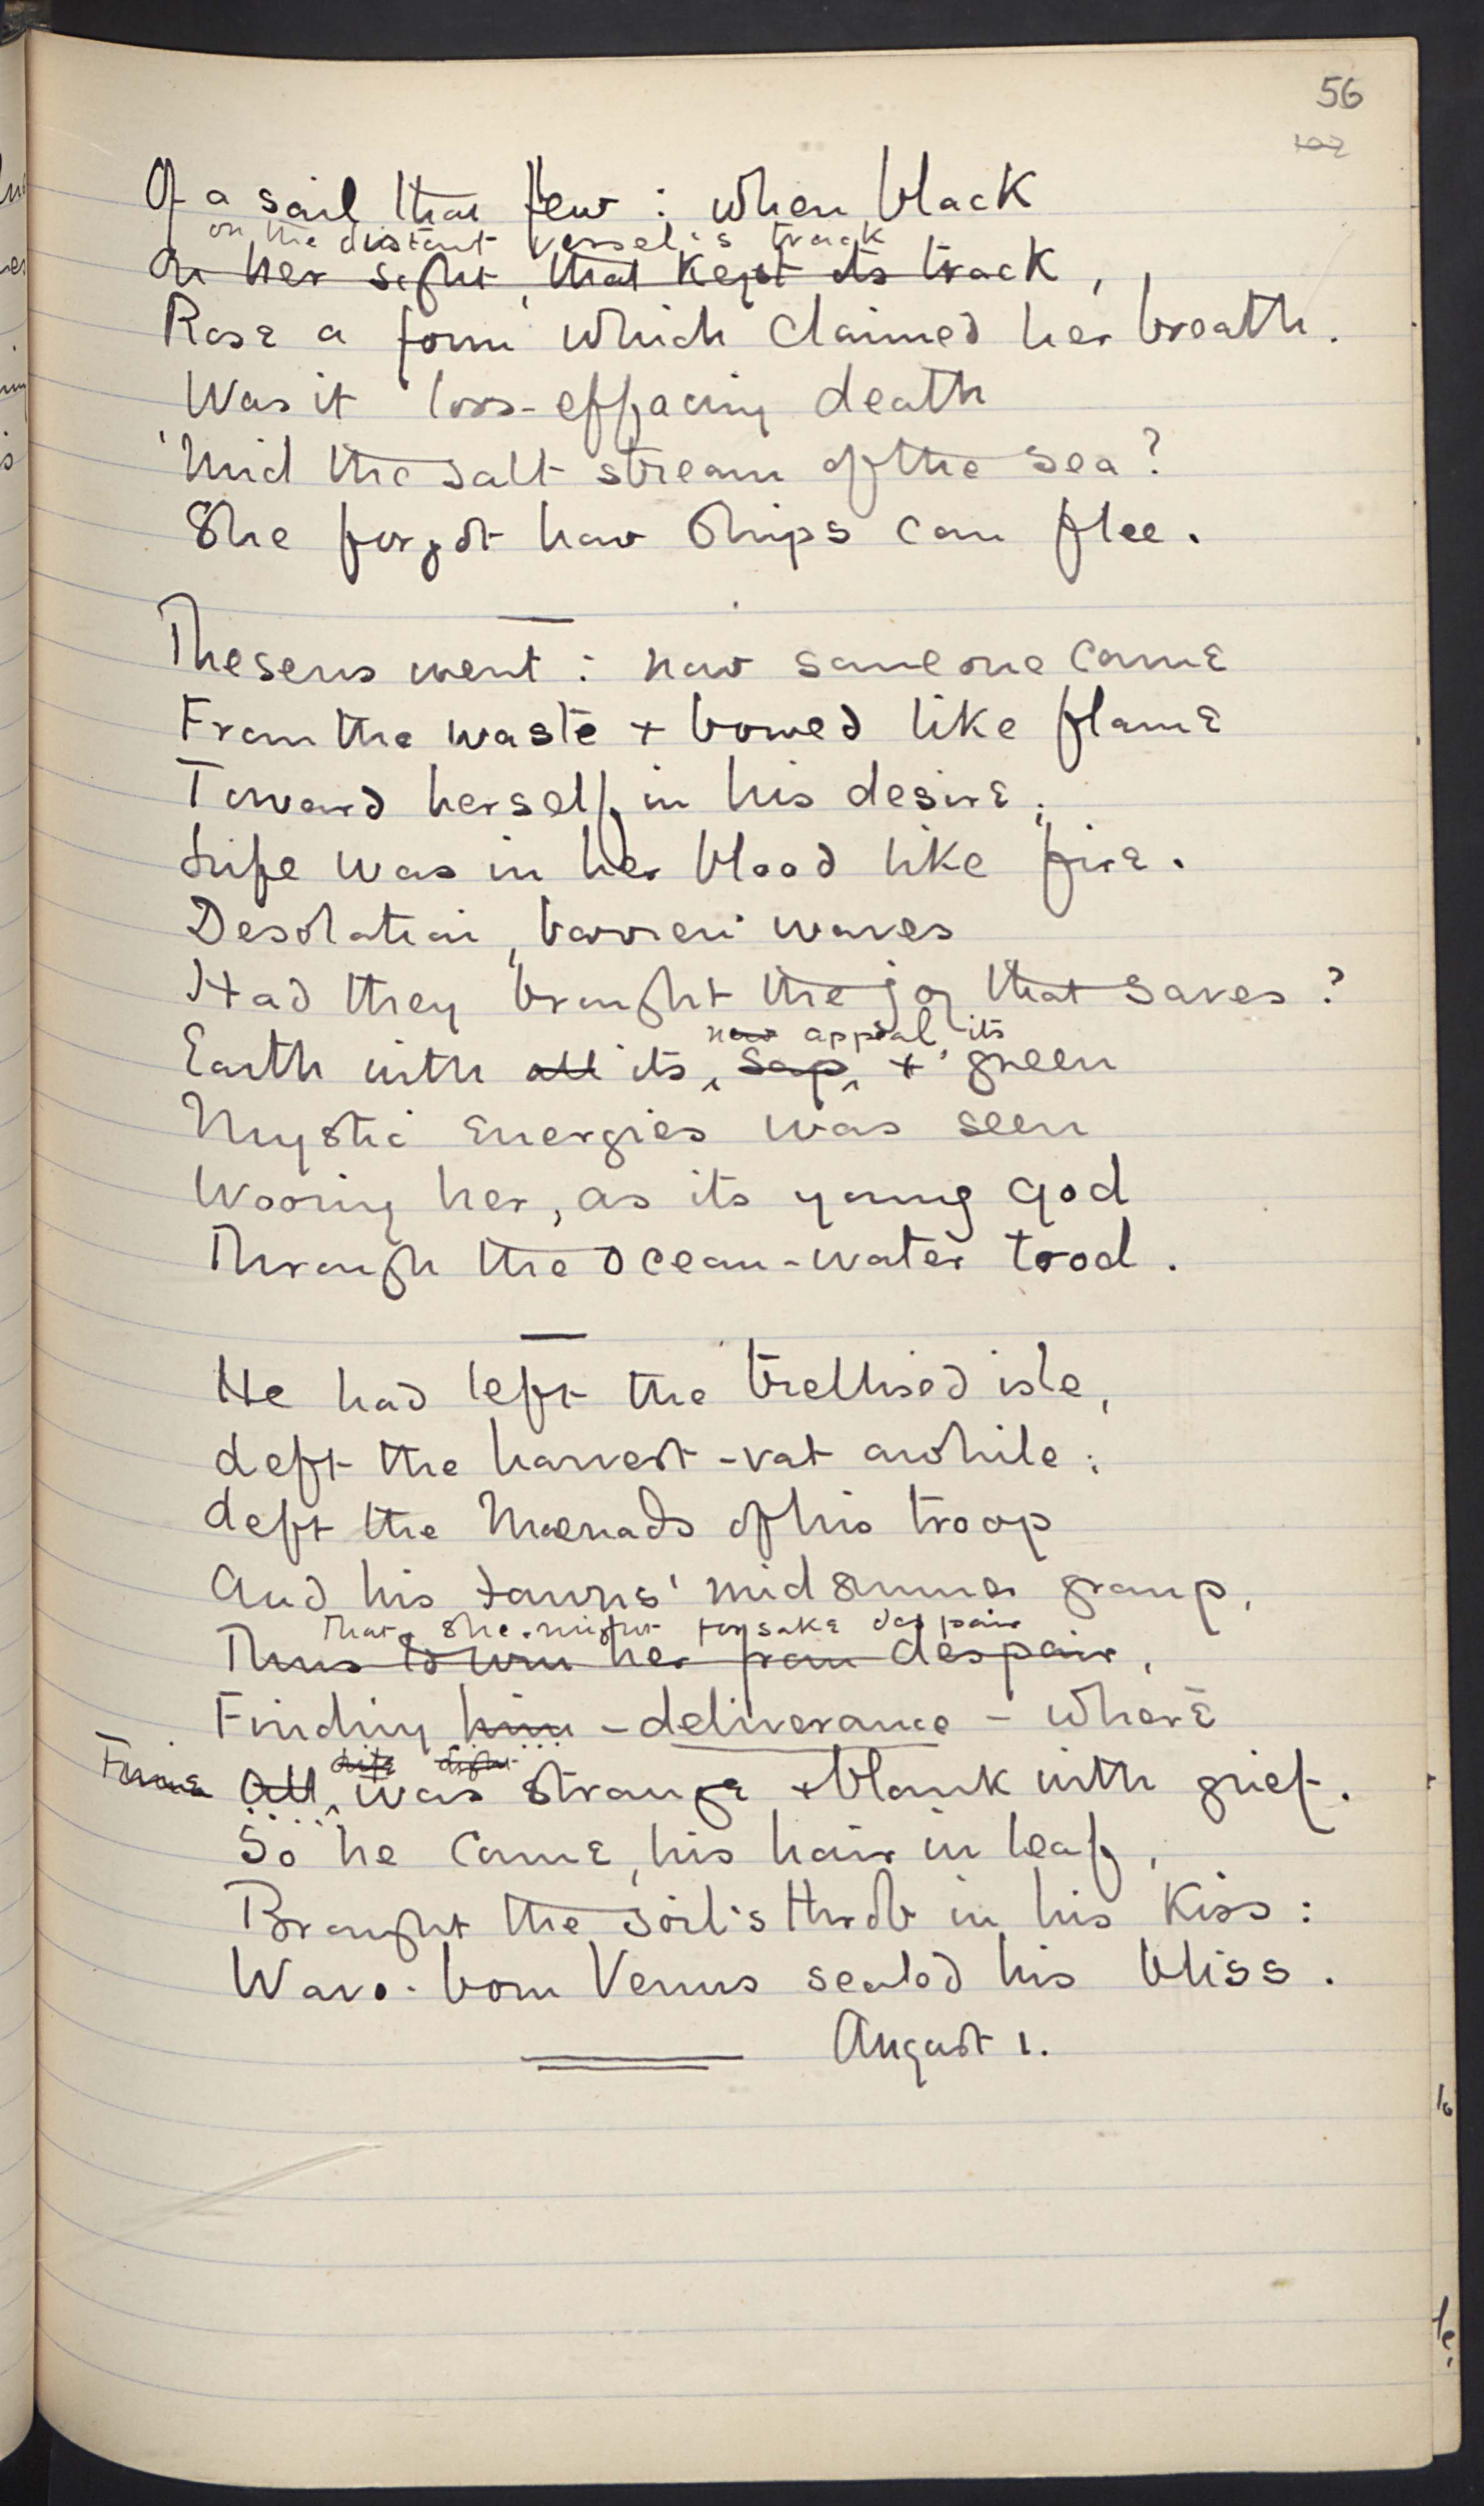 56
102
Of a sail that flew : when black
on the distant vessel's track
On her sight, that kept its track,
Rose a form which claimed her breath.
Was it loss-effacing death
'Mid the salt stream of the sea?
She forgot how ships can flee.
Theseus went : now someone came
From the waste + bowed like flame
Toward herself in his desire;
Life was in her blood like fire.
Desolation, barren waves
Had they brought the joy that saves?
new appeal, its
Earth with all its sap, + green
Mystic energies was seen
Wooing her, as its young god
Through the ocean-water trod.
He had left the trellised isle,
Left the harvest-vat awhile;
Left the Maenads of his troop
And his fawns' midsummer group,
That she might forsake despair
Thus to win her from despair,
Finding him - deliverance - where
life light
All was strange + blank with grief.
So he came, his hair in leaf,
Brought the soil's throb in his kiss:
Wave-born Venus sealed his bliss.
August 1.